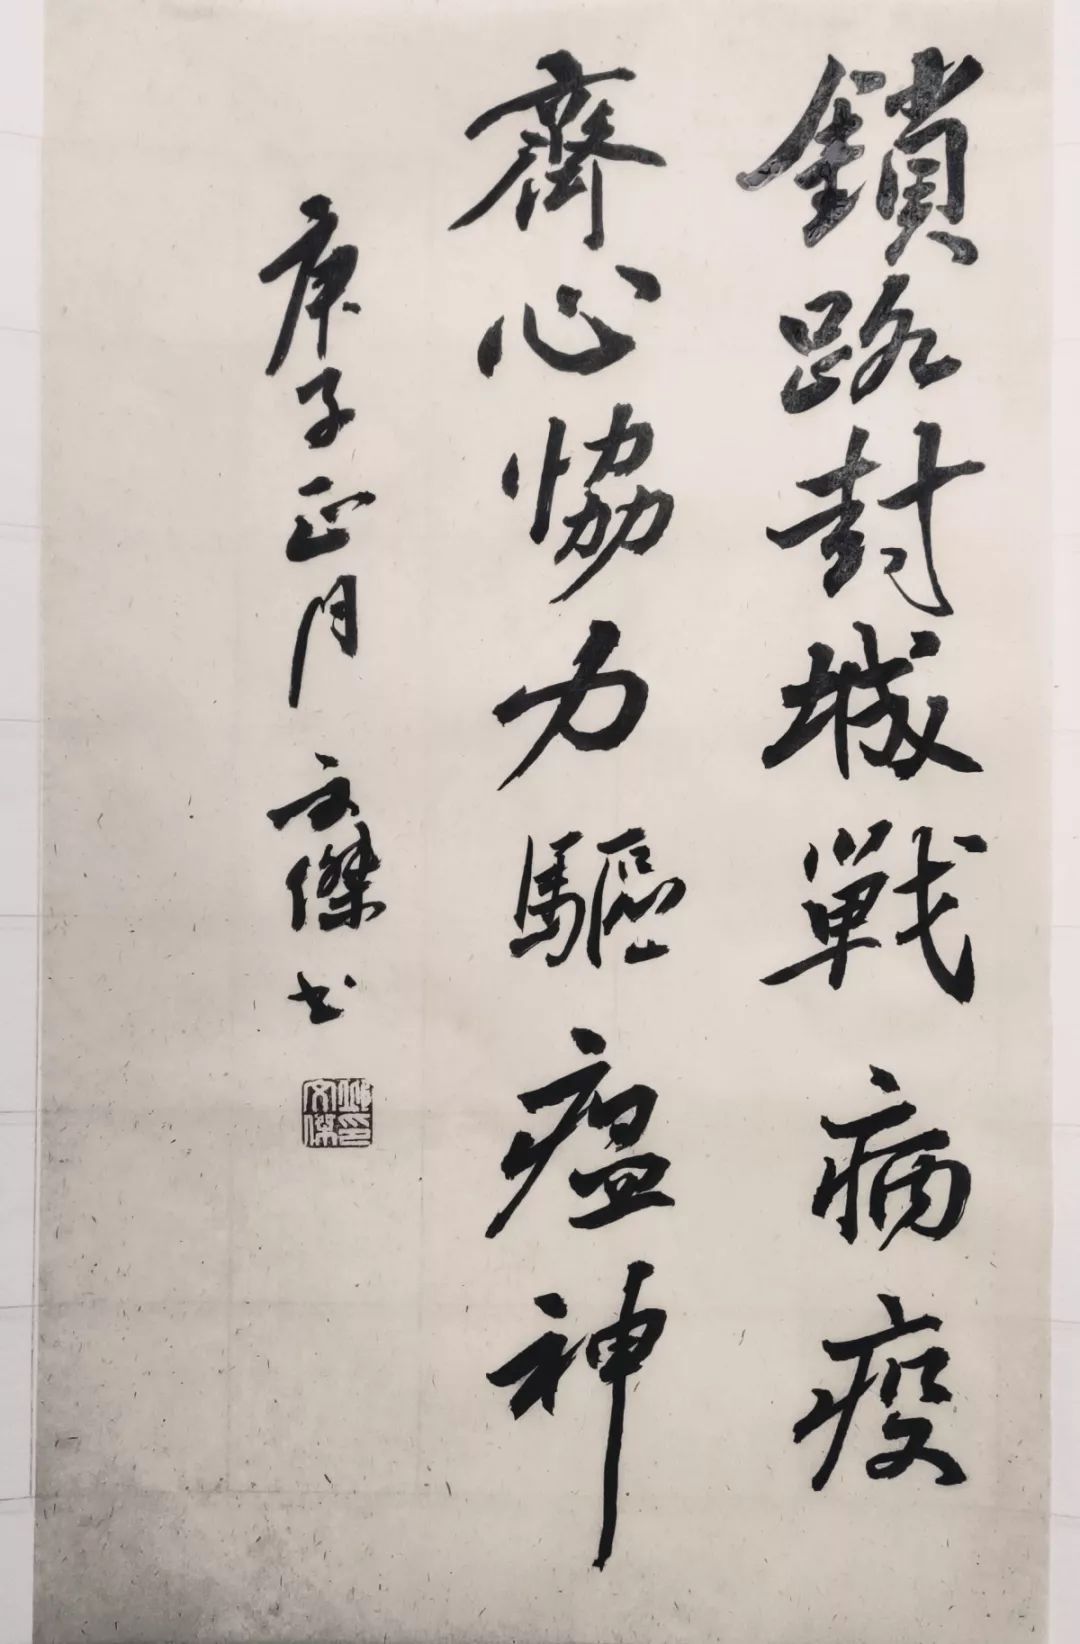 鎖路封城戰病疫
齊心恊力驅瘟神
庚子正月 文傑书